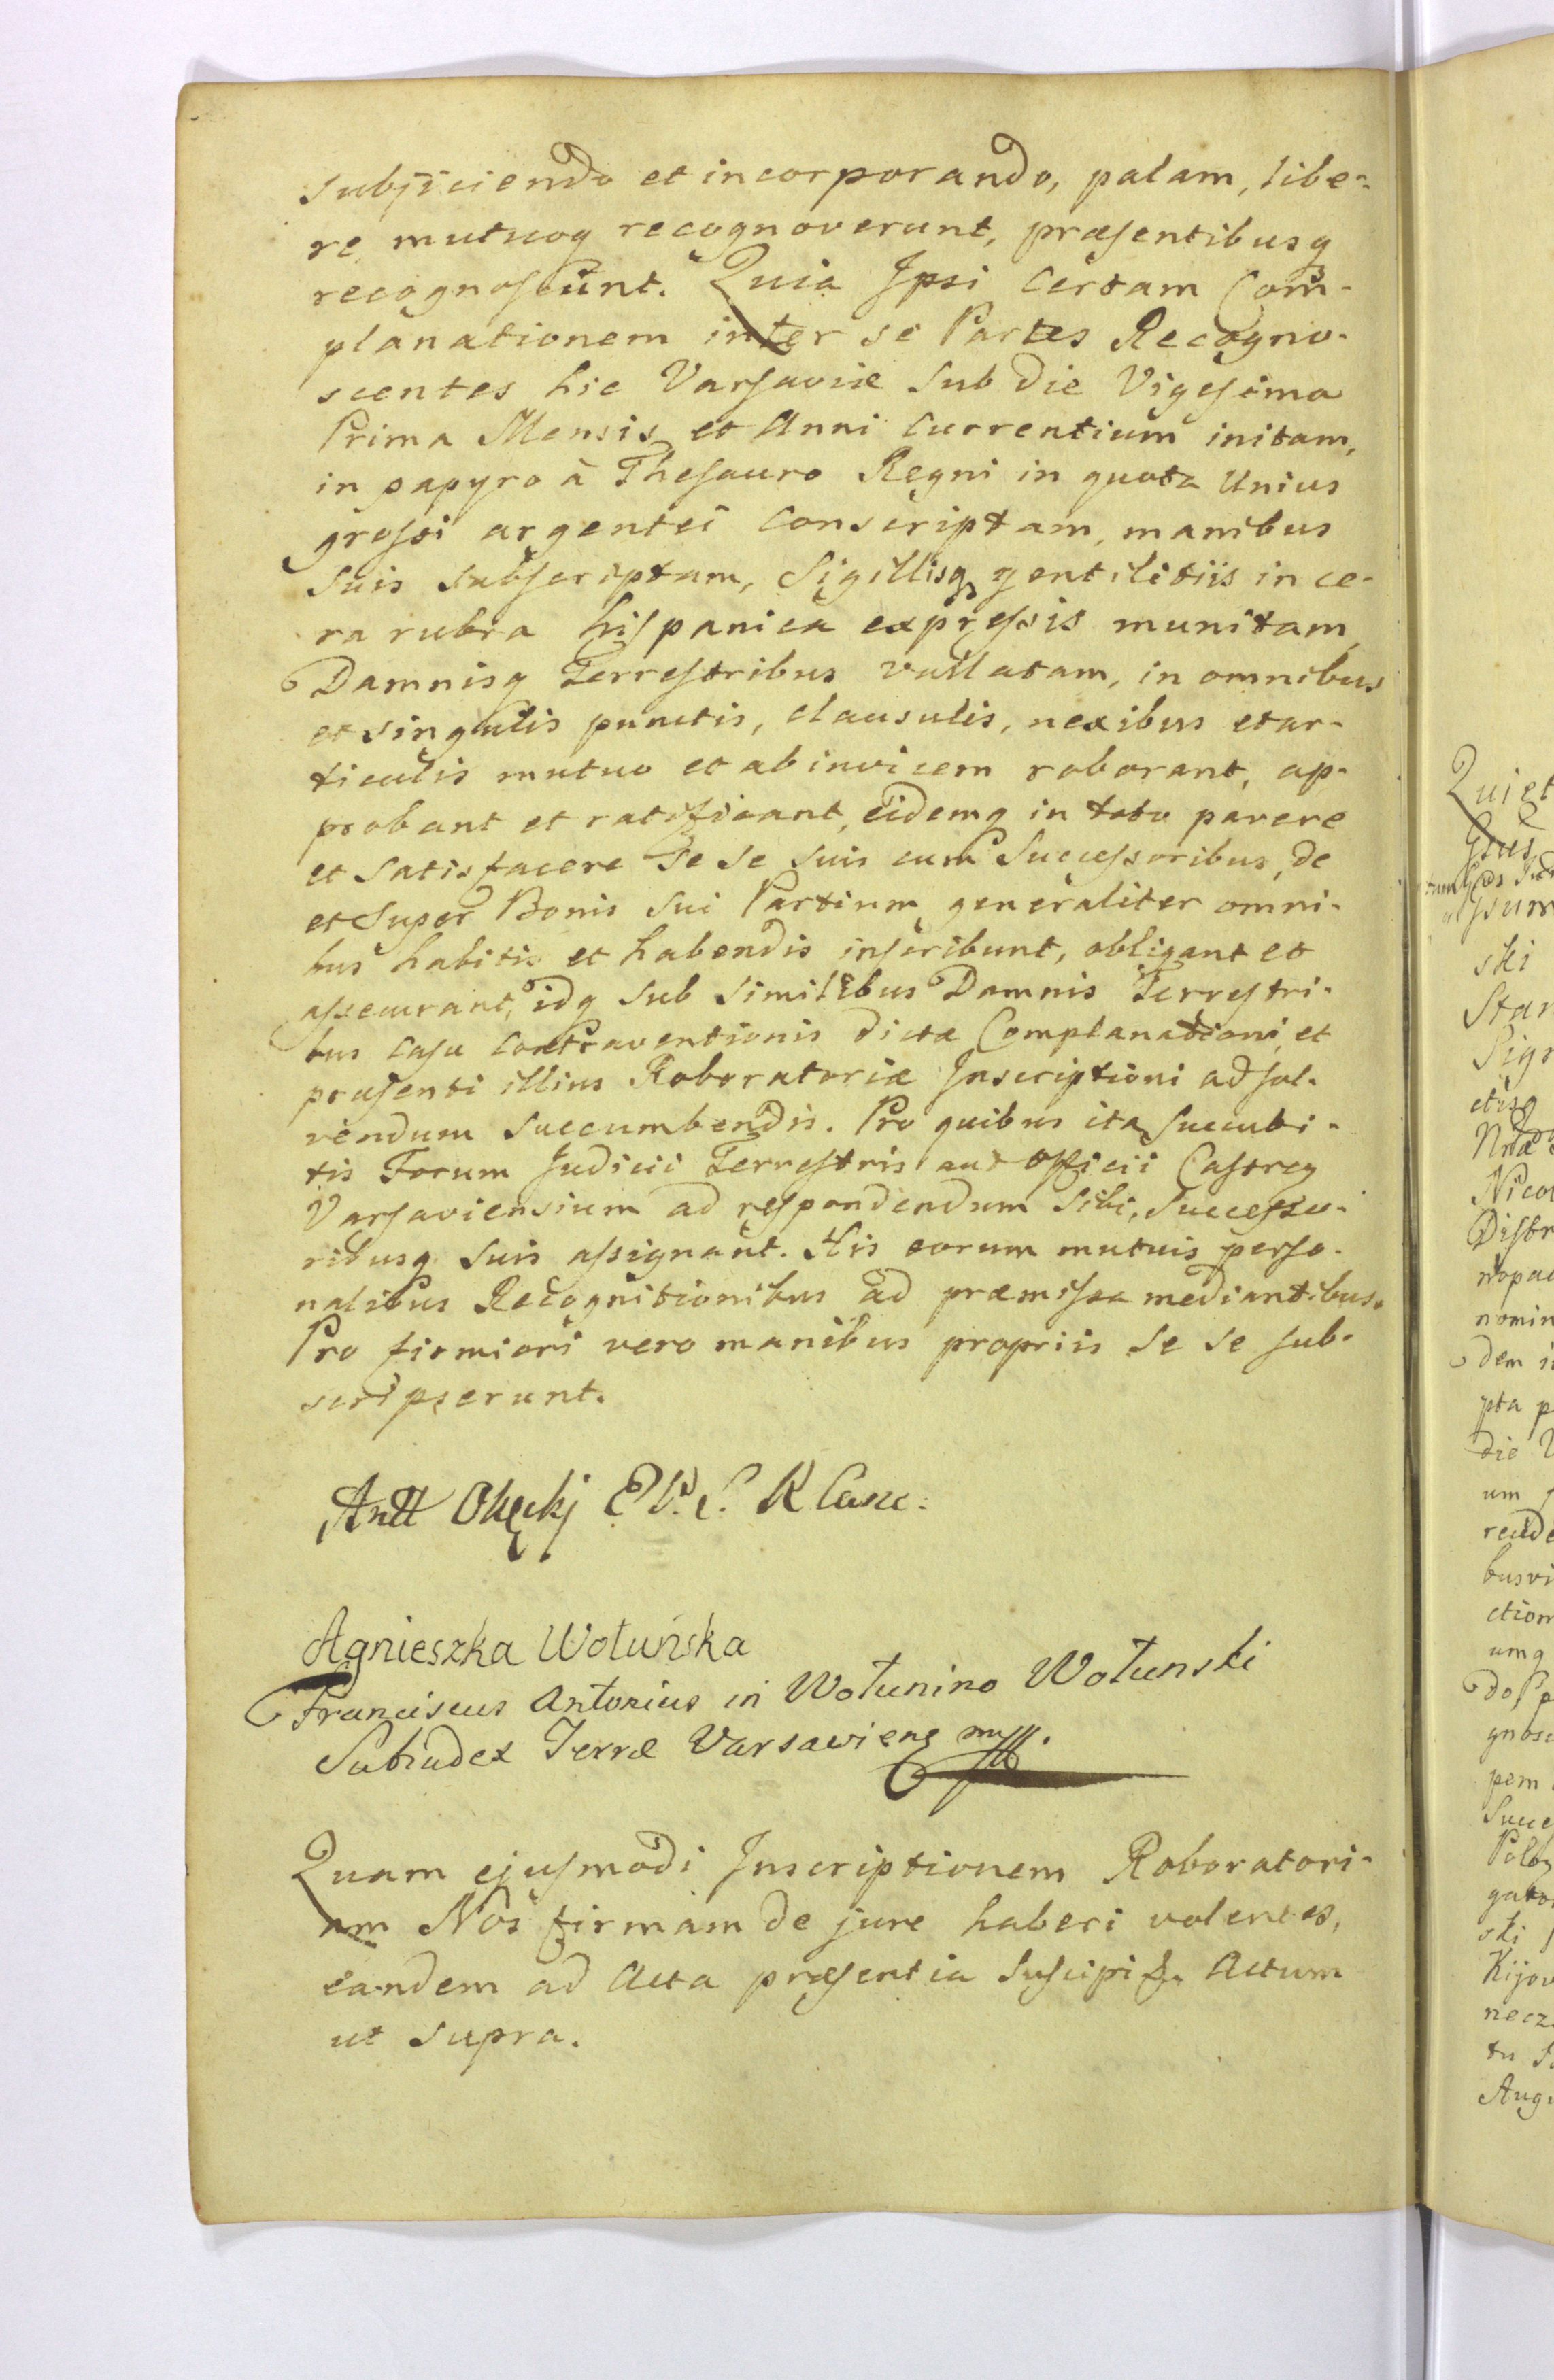 subjiciendo et incorporando, palam, libe-
re mutuoq recognoverunt, præsentibusq
recognoscunt. Quia Ipsi Certam Com-
planationem inter se Partes Recogno-
scentes hic Varsaviæ sub die Vigesima
Prima Mensis et Anni Currentium initam,
in papyro à Thesauro Regni in quota Unius
grossi argentei Conscriptam, manibus
suis subscriptam, Sigillisq gentilitiis in ce-
ra rubra hispanica expressis munitam,
Damnisq Terrestribus vallatam, in omnibus
et singulis punctis, clausulis, nexibus et ar-
ticulis mutuo et ab invicem roborant, ap-
probant et ratificant, eidemq in toto parere
et satisfacere se se suis cum Successoribus, de
et super Bonis sui Partium generaliter omni-
bus habitis et habendis inscribunt, obligant et
assecurant, idq sub similibus Damnis Terrestri-
bus casu contraventionis dictæ Complanationi et
præsenti illius Roboratoriæ Inscriptioni ad sol-
vendum succumbendis. Pro quibus ita succubi-
tis Forum Judicii Terrestris aut Officii Castren
Varsaviensium ad respondendum sibi, Successo-
ribusq suis assignant. His eorum mutuis perso-
nalibus Recognitionibus ad præmissa mediantibus.
Pro firmiori vero manibus propriis se se sub-
scripserunt.
Antt Okęckj E P. S. R Canc:
Agnieszka Wołuńska
Franciscus Antonius in Wołunino Wołunski
Subiudex Terræ Varsaviens mpp.
Quam ejusmodi Inscriptionem Roboratori-
am Nos firmam de jure haberi volentes,
eandem ad Acta præsentia suscipi Actum
ut supra.
Quiet
ski
Star
Nico
nopac
nomin
dem i
pta p
die V
um
busvi
ction
umq
gnosc
pem
Succe
ski
Kijov
necz
Aug